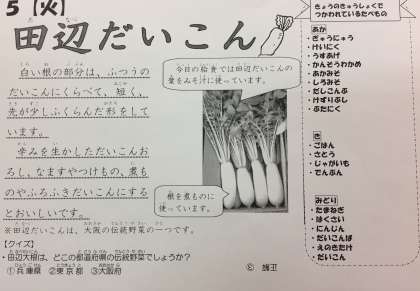 5【火】
田辺だいこん
白い根の部分は、ふつうの
だいこんにくらべて、短く、
先が少しふくらんだ形をして
います。
辛みを生かしただいこんお
ろし、なますやつけもの、煮も
のやふろふきだいこんにする
とおいしいです。
※田辺だいこんは、大阪の伝統野菜の一つです。
【クイズ】
・田辺大根は、どこの都道府県の伝統野菜でしょうか？
①兵庫県 ②東京都 ③大阪府
今日の給食では田辺だいこんの
葉をみそ汁に使っています。
根を煮ものに
使っています。
きょうのきゅうしょくで
つかわれているたべもの
あか
・ぎゅうにゅう
・けいにく
・うすあげ
・かんそうわかめ
・あかみそ
・しろみそ
・だしこんぶ
・けずりぶし
・ぶたにく
き
・ごはん
・さとう
・じゃがいも
・でんぷん
みどり
・たまねぎ
・はくさい
・にんじん
・だいこんば
・えのきたけ
・だいこん